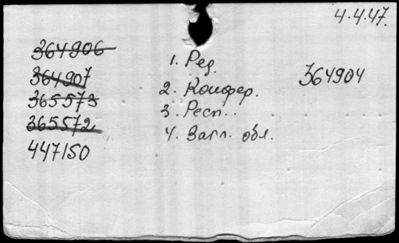 4.4.47.
364906
364907
365573
365572
447150
1. Ред.
2. Конфер.
3. Респ..
4. Загл. обл.
364904